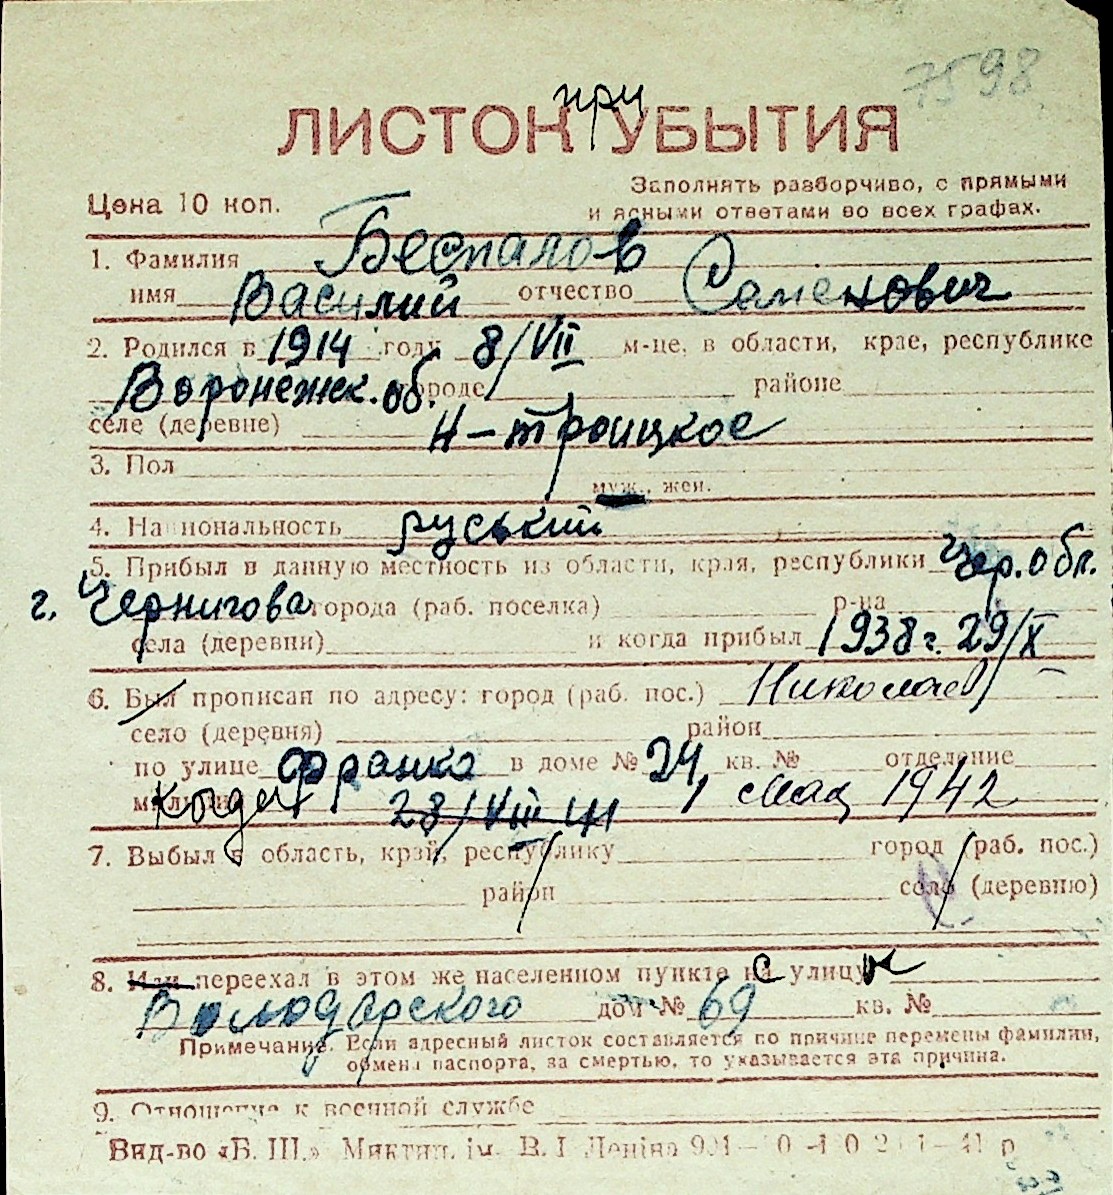 7598
при
ЛИСТОК УБЫТИЯ
Цена 10 коп.
Заполнять разборчиво, с прямыми
и ясными ответами во всех графах.
1. Фамилия Беспалов
имя Василий отчество Саменович
2. Родился в 1914 году 8/VII м-це, в области, крае, республике
Воронежск. об. городе районе
селе (деревне) Н-троицкое
3. Пол
муж., жен.
4. Национальность руський
5. Прибыл в данную местность из области, края, республики Чер. обл.
г. Чернигова города (раб. поселка) р-на
села (деревни) и когда прибыл 1938 г. 29/X
6. Был прописан по адресу: город (раб. пос.) Николаев
село (деревня) район
по улице Франка в доме № 24 кв. № отделение
милиции Когда 28/VIII 41 1 мая 1942
7. Выбыл в область, край, республику город (раб. пос.)
район село (деревню)
8. Или переехал в этом же населенном пункте с улицы
Володарского дом № 69 кв. №
Примечание. Если адресный листок составляется по причине перемены фамилии,
обмена паспорта, за смертью, то указывается эта причина.
9. Отношение к военной службе
Вид-во «Б. Ш.» Миктип. ім. В. І Леніна